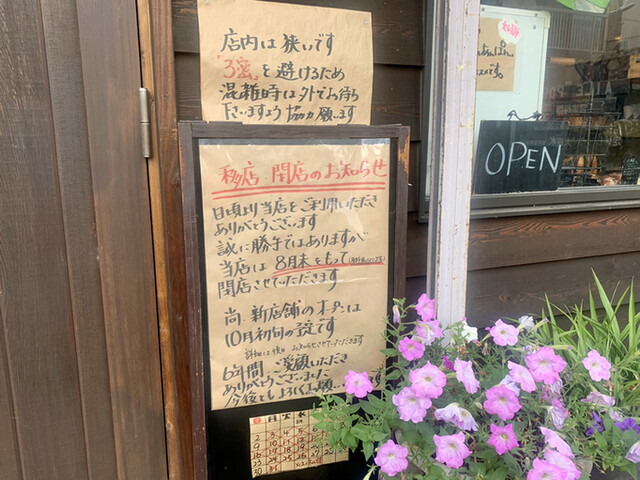 店内は狭いです
「3密」を避けるため
混雑時は外でお待ち
下さいますよう協力願います
OPEN
移店・閉店のお知らせ
日頃より当店をご利用いただき
ありがとうございます
誠に勝手ではありますが
当店は8月末をもって
閉店させていただきます
尚、新店舗のオープンは
10月初旬の予定です
詳細は後日お知らせさせていただきます
6年間、ご愛顧いただき
ありがとうございました
今後ともよろしくお願い